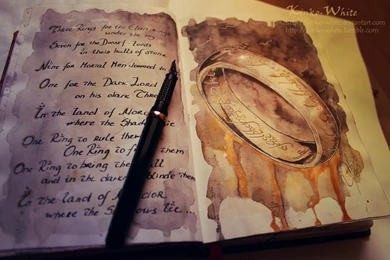 Three Rings for the
under the
Seven for the Dwarf-lords
in their halls of stone
Nine for Mortal Men doomed to
One for the Dark Lord
on his dark Thro
In the Land of Mor
where the Shadow
One Ring to rule them
One Ring to find them
One Ring to bring them all
and in the dark bind them
In the Land of Mordor
where the Shadows lie...
Kinko-White